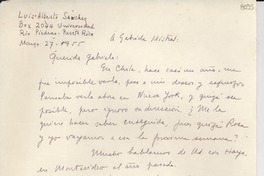 Luis-Alberto Sánchez
Box 2044 Universidad
Río Piedras-Puerto Rico
Mayo, 27-1955
A Gabriela Mistral.
Querida Gabriela:
En Chile, hace casi un año, me
fue imposible verla, pese a mis deseos y esfuerzos
Pensaba verla ahora en Nueva York, y quizá sea
posible, pero ignoro su dirección? ¿Me la
quiere hacer saber enseguida, pues quizá Rosa
y yo vayamos a en la próxima semana?
Mucho hablamos de Ud. con Haya,
en Montevideo el año pasado.